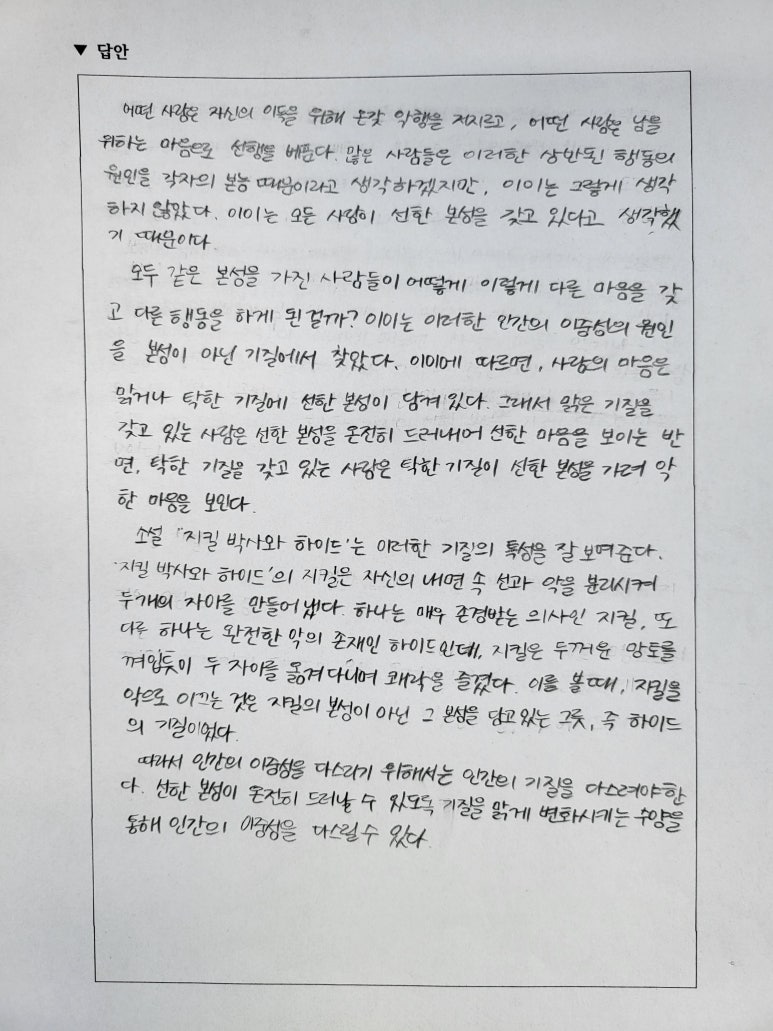 ▼ 답안
어떤 사람은 자신의 이득을 위해 온갖 악행을 저지르고, 어떤 사람은 남을
위하는 마음으로 선행을 베푼다. 많은 사람들은 이러한 상반된 행동의
원인을 각자의 본능 때문이라고 생각하겠지만, 이이는 그렇게 생각
하지 않았다. 이이는 모든 사람이 선한 본성을 갖고 있다고 생각했
기 때문이다.
모두 같은 본성을 가진 사람들이 어떻게 이렇게 다른 마음을 갖
고 다른 행동을 하게 된 걸까? 이이는 이러한 인간의 이중성의 원인
을 본성이 아닌 기질에서 찾았다. 이이에 따르면, 사람의 마음은
맑거나 탁한 기질에 선한 본성이 담겨 있다. 그래서 맑은 기질을
갖고 있는 사람은 선한 본성을 온전히 드러내어 선한 마음을 보이는 반
면, 탁한 기질을 갖고 있는 사람은 탁한 기질이 선한 본성을 가려 악
한 마음을 보인다.
소설 '지킬 박사와 하이드'는 이러한 기질의 특성을 잘 보여준다.
'지킬 박사와 하이드'의 지킬은 자신의 내면 속 선과 악을 분리시켜
두개의 자아를 만들어 냈다. 하나는 매우 존경받는 의사인 지킬, 또
다른 하나는 완전한 악의 존재인 하이드인데, 지킬은 두꺼운 망토를
껴입듯이 두 자아를 옮겨 다니며 쾌락을 즐겼다. 이를 볼 때, 지킬을
악으로 이끄는 것은 지킬의 본성이 아닌 그 본성을 담고 있는 그릇, 즉 하이드
의 기질이었다.
따라서 인간의 이중성을 다스리기 위해서는 인간의 기질을 다스려야 한
다. 선한 본성이 온전히 드러날 수 있도록 기질을 맑게 변화시키는 수양을
통해 인간의 이중성을 다스릴 수 있다.